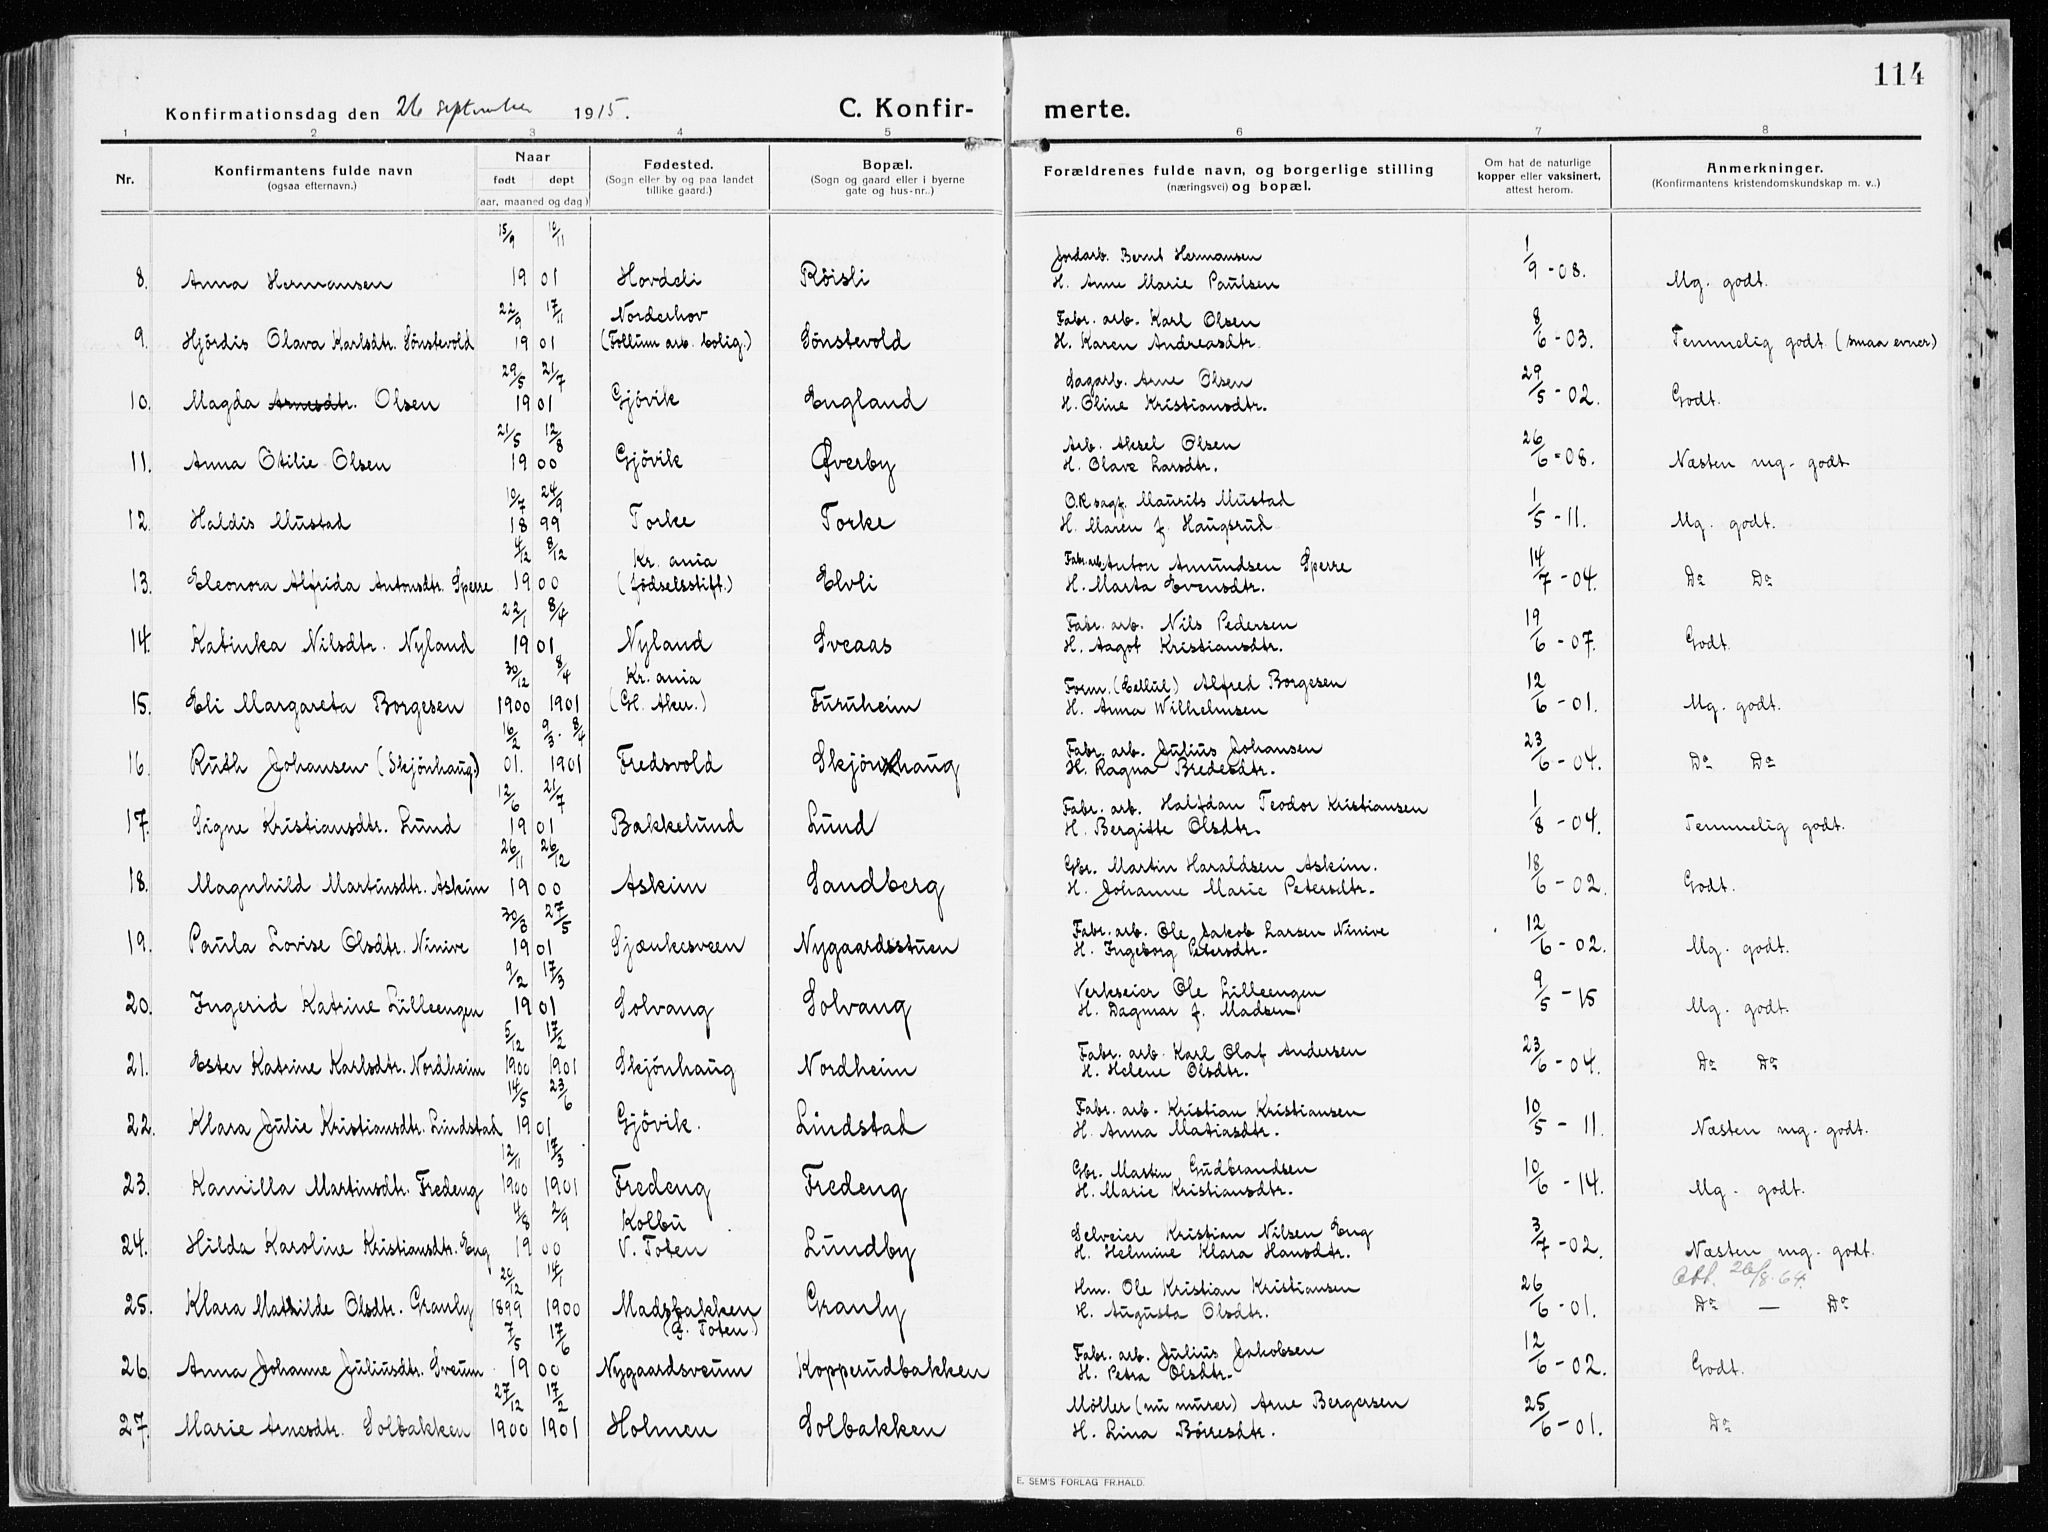 114
Konfirmationsdag den 26 september 1915. C. Konfir- merte.
1 2 3 4 5 6 7 8
Nr. Konfirmantens fulde navn (ogsaa efternavn.) Naar født døpt (aar, maaned og dag) Fødested. (Sogn eller by og paa landet tillike gaard.) Bopæl. (Sogn og gaard eller i byerne gate og hus-nr..) Forældrenes fulde navn, og borgerlige stilling (næringsvei) og bopæl. Om hat de naturlige kopper eller vaksinert, attest herom. Anmerkninger. (Konfirmantens kristendomskundskap m. v..)
15/9 10/11 Jordarb. Bernt Hermansen
8. Anna Hermansen 19 01 Hovdeli Röisli H. Anne Marie Paulsen 1/9 - 08. Mg. godt.
22/9 17/11 Norderhov Fabr. arb. Karl Olsen
9. Hjördis Olava Karlsdtr. Sönstevold 19 01 (Follum arb. bolig.) Sönstevold H. Karen Andreasdtr. 8/6 - 03. Temmelig godt (smaa evner)
29/5 21/7 dagarb. Arne Olsen
10. Magda Arnesdtr. Olsen 19 01 Gjövik England H. Oline Kristiansdtr. 29/5 - 02. Godt.
21/5 12/8 Arb. Aksel Olsen
11. Anna Otilie Olsen 19 00 Gjövik Øverby H. Olave Larsdtr. 26/6 - 08. Næsten mg. godt
10/7 24/9 O.R.sagf. Maurits Mustad
12. Haldis Mustad 18 99 Torke Torke H. Maren f. Haugsrud 1/5 - 11. Mg. godt.
4/12 8/12 Kr. ania Fabr. arb. Anton Amundsen Sperre
13. Eleonora Alfrida Antonsdtr. Sperre 19 00 (Födselsstift.) Elvli H. Marta Evensdtr. 14/7 - 04. Do Do
22/1 8/4 Fabr. arb. Nils Pedersen
14. Katinka Nilsdtr. Nyland 19 01 Nyland Sveaas H. Aagot Kristiansdtr. 19/6 - 07. Godt.
30/12 8/4 Kr. ania Form. (Cellul.) Alfred Borgesen
15. Eli Margareta Borgesen 1900 1901 (Gl. Aker.) Furuheim H. Anna Wilhelmsen 12/6 - 01. Mg. godt.
16/2 9/3 - 8/4 Fabr. arb. Julius Johansen
16. Ruth Johansen (Skjönhaug.) 01. 1901 Fredsvold Skjönhaug H. Ragna Bredesdtr. 23/6 - 04. Do Do
12/6 21/7 Fabr. arb. Halfdan Teodor Kristiansen
17. Signe Kristiansdtr. Lund 19 01 Bakkelund Lund H. Bergitte Olsdtr. 1/8 - 04. Temmelig godt.
26/11 26/12 Gbr. Martin Haraldsen Askim.
18. Magnhild Martinsdtr. Askim 19 00 Askim Sandberg H. Johanne Marie Petersdtr. 18/6 - 02. Godt.
30/3 27/5 Fabr. arb. Ole Jakob Larsen Ninive
19. Paula Lovise Olsdtr. Ninive 19 01 Sjænkesveen Nygaardsstuen H. Ingeborg Petersdtr. 12/6 - 02. Mg. godt.
9/2 17/3 Verkseier Ole Lilleengen
20. Ingerid Katrine Lilleengen 19 01 Solvang Solvang H. Dagmar f. Madsen 9/5 - 15 Mg. godt.
5/12 17/2 Fabr. arb. Karl Olaf Andersen
21. Ester Katrine Karlsdtr. Nordheim 1900 1901 Skjönhaug Nordheim H. Helene Olsdtr. 23/6 - 04. Do Do
14/5 23/6 Fabr. arb. Kristian Kristiansen
22. Klara Julie Kristiansdtr. Lindstad 19 01 Gjövik. Lindstad H. Anna Matiasdtr. 10/5 - 11. Næsten mg. godt.
12/11 17/3 Gbr. Martin Gudbrandsen
23. Kamilla Martinsdtr. Fredeng 1900 1901 Fredeng Fredeng H. Marie Kristiansdtr. 10/6 - 14. Mg. godt.
4/8 2/9 Kolbu Selveier Kristian Nilsen Eng
24. Hilda Karoline Kristiansdtr. Eng 19 00 V. Toten Lundby H. Helmine Klara Hansdtr. 3/7 - 02. Næsten mg. godt.
20/12 14/1 Hm. Ole Kristian Kristiansen Att. 26/8.64.
25. Klara Mathilde Olsdtr. Granby 1899 1900 Madsbakken (Ø. Toten.) Granby H. Augusta Olsdtr. 26/6 - 01. Do — Do
7/5 17/6 Fabr. arb. Julius Jakobsen
26. Anna Johanne Juliusdtr. Sveum 19 00 Nygaardsveum Kopperudbakken H. Petra Olsdtr. 12/6 - 02. Godt.
27/12 17/2 Møller (nu murer) Arne Bergersen
27. Marie Arnesdtr. Solbakken 1900 1901 Holmen Solbakken H. Lina Børresdtr. 25/6 - 01. Do
E. SEM'S FORLAG FR.HALD.